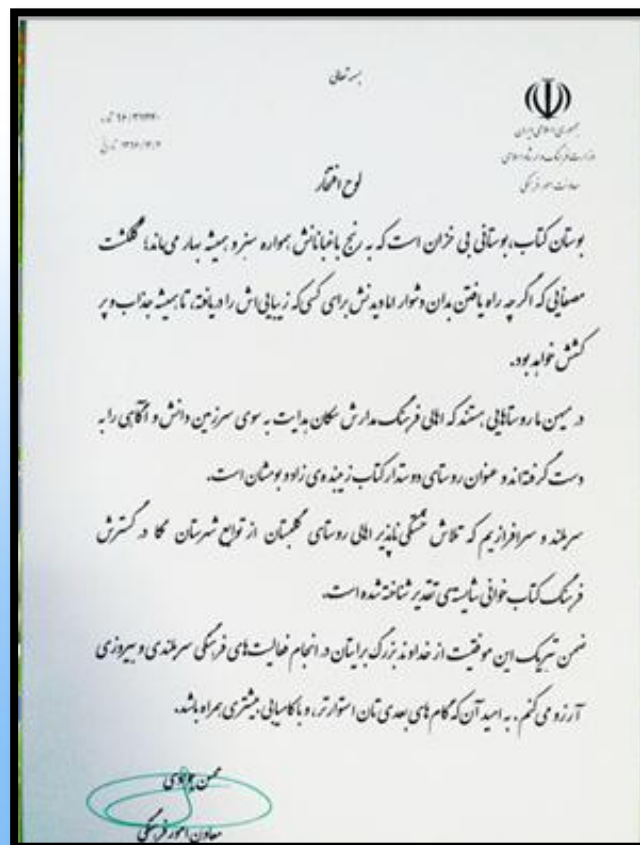 بسمه تعالی
جمهوری اسلامی ایران
وزارت فرهنگ و ارشاد اسلامی
معاونت امور فرهنگی
لوح افتخار
بوستان کتاب، بوستانی بی خزان است که به رنج باغبانانش همواره سبز و همیشه بهار می‌ماند؛ گلگشت
مصفایی که اگر چه راه یافتن بدان دشوار اما دیدنش برای کسی که زیبایی‌اش را دریافته، تا همیشه جذاب و پر
کشش خواهد بود.
در میهن ما روستاهایی هستند که اهالی فرهنگ مدارش سکان هدایت به سوی سرزمین دانش و آگاهی را به
دست گرفته‌اند و عنوان روستای دوستدار کتاب زیبنده‌ی زاد و بومشان است.
سربلند و سرافرازیم که تلاش خستگی ناپذیر اهالی روستای گلبستان از توابع شهرستان نکا در گسترش
فرهنگ کتاب خوانی شایسته‌ی تقدیر شناخته شده است.
ضمن تبریک این موفقیت از خداوند بزرگ برایتان در انجام فعالیت‌های فرهنگی سربلندی و پیروزی
آرزو می‌کنم. به امید آن که گام‌های بعدی‌تان استوارتر، و با کامیابی بیشتری همراه باشد.
محسن جوادی
معاون امور فرهنگی